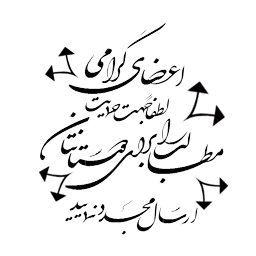 اعضای گرامی
لطفا جهت حمایت
مطالب را برای دوستانتان
ارسال مجدد نمایید